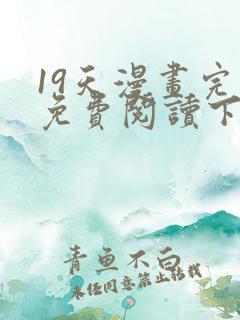 19天漫畫完
免費閱讀下
青魚不白
未经同意禁止转载